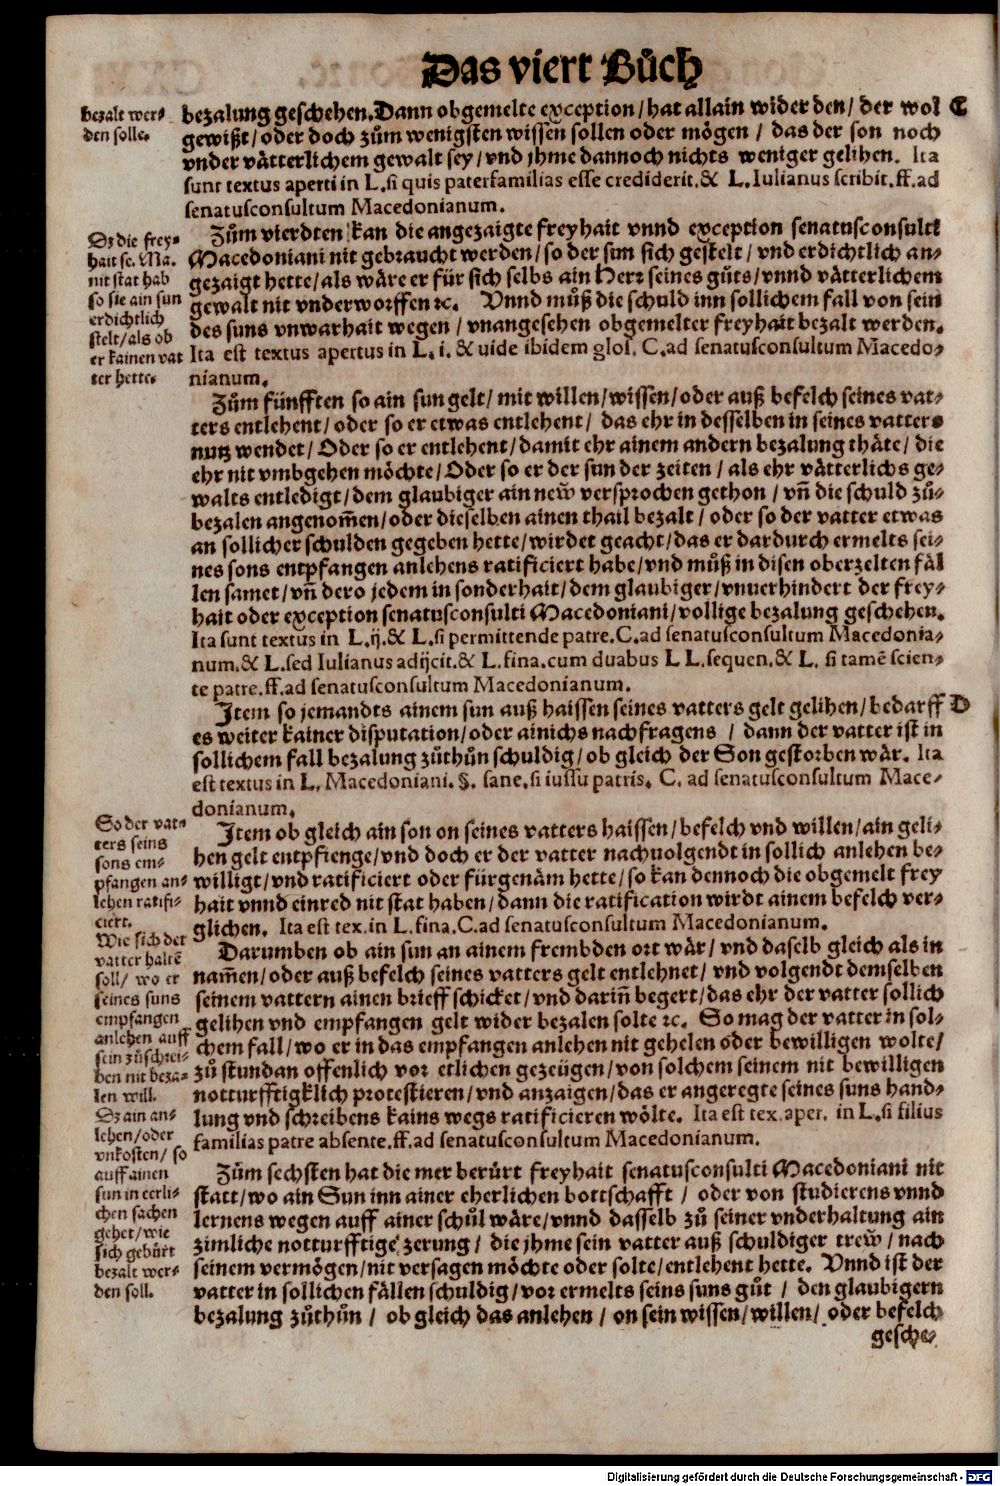 Das viert Bůch
bezalt wer⸗
den solle.
bezalung geschehen. Dann obgemelte exception / hat allain wider den / der wol C
gewißt / oder doch zům wenigsten wissen sollen oder mögen / das der son noch
vnder vätterlichem gewalt sey / vnd jhme dannoch nichts weniger gelihen. Ita
sunt textus aperti in L. si quis paterfamilias esse crediderit. & L. Iulianus scribit. ff. ad
senatusconsultum Macedonianum.
Dz die frey⸗
hait sc. Ma.
nit stat hab
so sie ain sun
erdichtlich
stelt / als ob
er kainen vat
ter hette.
Zům vierdten kan die angezaigte freyhait vnnd exception senatusconsulti
Macedoniani nit gebraucht werden / so der sun sich gestelt / vnd erdichtlich an⸗
gezaigt hette / als wäre er für sich selbs ain Herr seines gůts / vnnd vätterlichem
gewalt nit vnderworffen ꝛc. Vnnd můß die schuld inn sollichem fall von sein
des suns vnwarhait wegen / vnangesehen obgemelter freyhait bezalt werden.
Ita est textus apertus in L. i. & uide ibidem glos. C. ad senatusconsultum Macedo⸗
nianum.
Zům fünfften so ain sun gelt / mit willen / wissen / oder auß befelch seines vat⸗
ters entlehent / oder so er etwas entlehent / das ehr in desselben in seines vatters
nutz wendet / Oder so er entlehent / damit ehr ainem andern bezalung thäte / die
ehr nit vmbgehen möchte / Oder so er der sun der zeiten / als ehr vätterlichs ge⸗
walts entledigt / dem glaubiger ain new̃ versprochen gethon / vñ die schuld zů⸗
bezalen angenom̃en / oder dieselben ainen thail bezalt / oder so der vatter etwas
an sollicher schulden gegeben hette / wirdet geacht / das er dardurch ermelts sei⸗
nes sons entpfangen anlehens ratificiert habe / vnd můß in disen oberzelten fäl
len samet / vñ dero jedem in sonderhait / dem glaubiger / vnuerhindert der frey⸗
hait oder exception senatusconsulti Macedoniani / vollige bezalung geschehen.
Ita sunt textus in L. ij. & L. si permittende patre. C. ad senatusconsultum Macedonia⸗
num. & L. sed Iulianus adijcit. & L. fina. cum duabus L L. sequen. & L. si tamē scien⸗
te patre. ff. ad senatusconsultum Macedonianum.
Item so jemandts ainem sun auß haissen seines vatters gelt gelihen / bedarff D
es weiter kainer disputation / oder ainichs nachfragens / dann der vatter ist in
sollichem fall bezalung zůthůn schuldig / ob gleich der Son gestorben wär. Ita
est textus in L. Macedoniani. §. sane. si iussu patris. C. ad senatusconsultum Mace⸗
donianum.
So der vat⸗
ters seins
sons em⸗
pfangen an⸗
lehen ratifi⸗
ciert.
Item ob gleich ain son on seines vatters haissen / befelch vnd willen / ain geli⸗
hen gelt entpfienge / vnd doch er der vatter nachuolgendt in sollich anlehen be⸗
willigt / vnd ratificiert oder fürgenäm hette / so kan dennoch die obgemelt frey
hait vnnd einred nit stat haben / dann die ratification wirdt ainem befelch ver⸗
glichen. Ita est tex. in L. fina. C. ad senatusconsultum Macedonianum.
Wie sich der
vatter haltē
soll / wo er
seines suns
empfangen
anlehen auff
sein zůschrei⸗
ben nit beza⸗
len will.
Darumben ob ain sun an ainem frembden ort wär / vnd daselb gleich als in
nam̃en / oder auß befelch seines vatters gelt entlehnet / vnd volgendt demselben
seinem vattern ainen brieff schicket / vnd dariñ begert / das ehr der vatter sollich
gelihen vnd empfangen gelt wider bezalen solte ꝛc. So mag der vatter in sol⸗
chem fall / wo er in das empfangen anlehen nit gehelen oder bewilligen wolte /
zů stundan offenlich vor etlichen gezeügen / von solchem seinem nit bewilligen
notturfftigklich protestieren / vnd anzaigen / das er angeregte seines suns hand⸗
lung vnd schreibens kains wegs ratificieren wölte. Ita est tex. aper. in L. si filius
familias patre absente. ff. ad senatusconsultum Macedonianum.
Dz ain an⸗
lehen / oder
vnkosten / so
auff ainen
sun in eerli⸗
chen sachen
gehet / wie
sich gebürt
bezalt wer⸗
den soll.
Zům sechsten hat die mer berůrt freyhait senatusconsulti Macedoniani nit
statt / wo ain Sun inn ainer eherlichen bottschafft / oder von studierens vnnd
lernens wegen auff ainer schůl wäre / vnnd dasselb zů seiner vnderhaltung ain
zimliche notturfftige zerung / die jhme sein vatter auß schuldiger trew̃ / nach
seinem vermögen / nit versagen möchte oder solte / entlehent hette. Vnnd ist der
vatter in sollichen fällen schuldig / vor ermelts seins suns gůt / den glaubigern
bezalung zůthůn / ob gleich das anlehen / on sein wissen / willen / oder befelch
gesche⸗
Digitalisierung gefördert durch die Deutsche Forschungsgemeinschaft - DFG